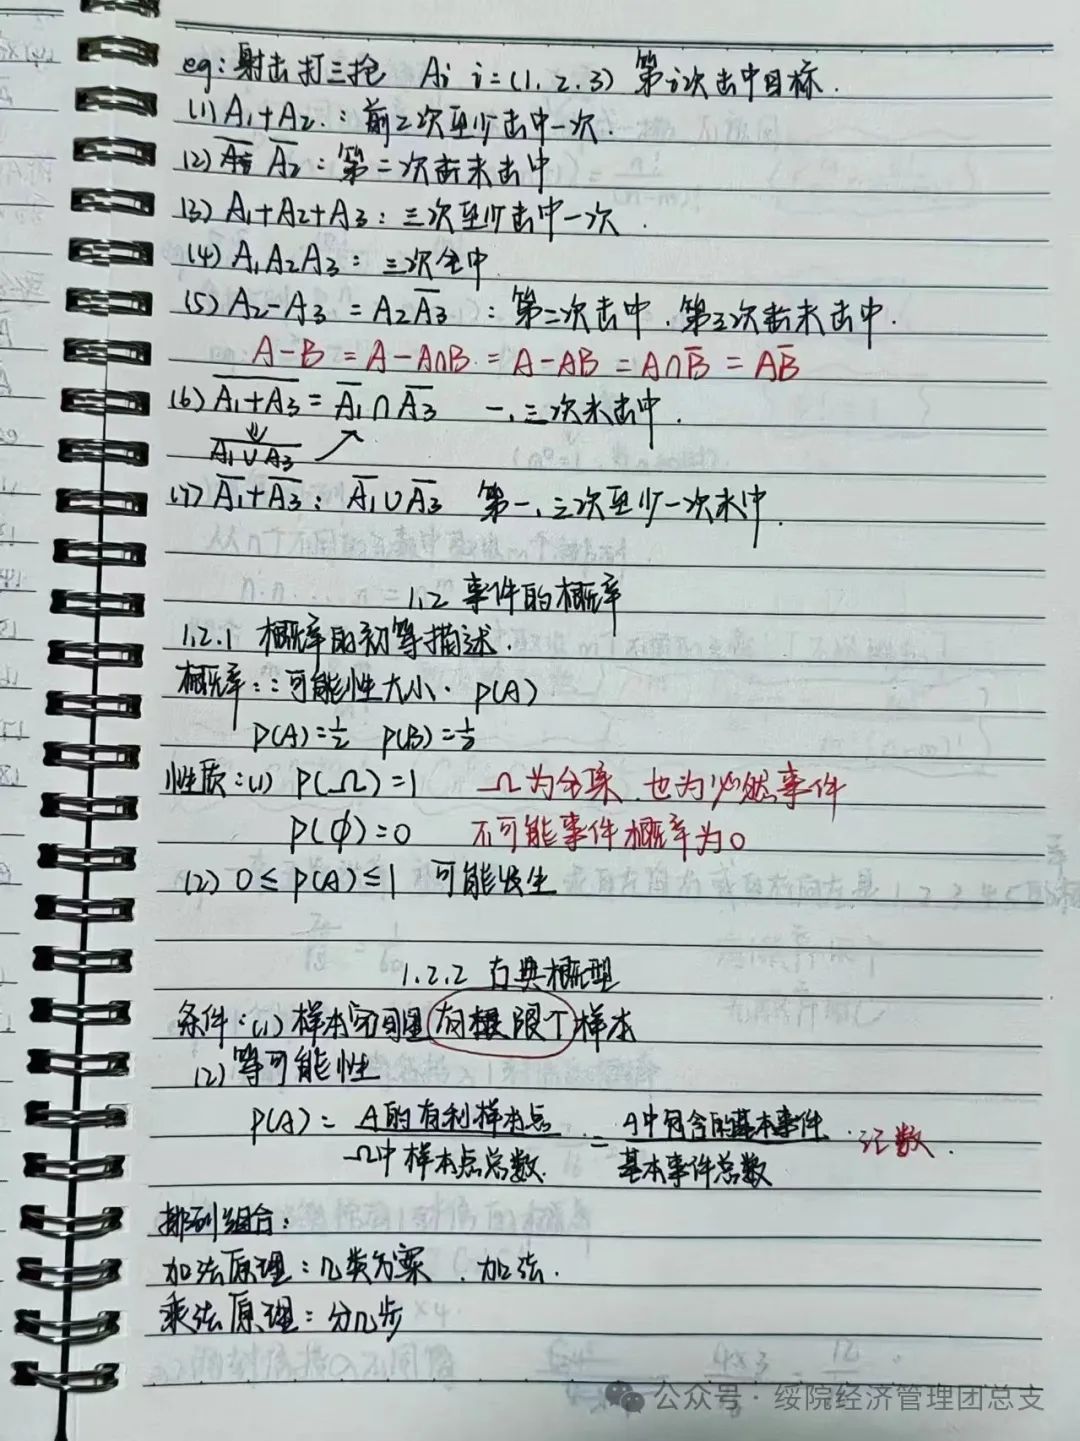 eg:射击打三抢 Ai i=(1.2.3) 第i次击中目标.
(1) A₁+A₂.:前2次至少击中一次.
(2) A̅₂:第二次未击中
(3) A₁+A₂+A₃:三次至少击中一次.
(4) A₁A₂A₃:三次全中
(5) A₂-A₃=A₂A̅₃:第二次击中.第三次未击中.
A-B=A-A∩B.=A-AB=A∩B̅=AB̅
(6) \overline{A₁+A₃}=A̅₁∩A̅₃ 一、三次未击中.
⇓ \overline{A₁∪A₃} ↗
(7) A̅₁+A̅₃:A̅₁∪A̅₃ 第一、三次至少一次未中.
1.2 事件的概率
1.2.1 概率的初等描述.
概率::可能性大小. P(A)
P(A)=½ P(B)=⅓
性质:(1) P(Ω)=1 Ω为全集.也为必然事件
P(φ)=0 不可能事件概率为0
(2) 0≤P(A)≤1 可能发生
1.2.2 古典概型
条件:(1)样本空间里有限个样本
(2)等可能性
P(A)=A的有利样本点/Ω中样本点总数.=A中包含的基本事件/基本事件总数.记数.
排列组合:
加法原理:几类方案.加法.
乘法原理:分几步
公众号·绥院经济管理团总支